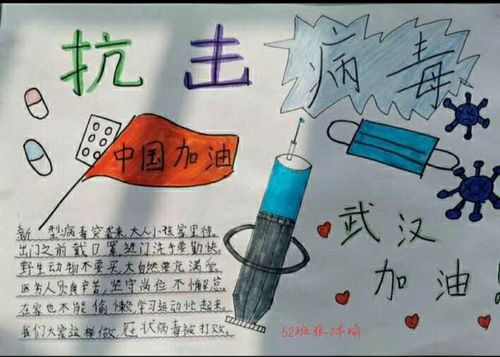 抗击病毒
中国加油
武汉
加油！
新型病毒突袭来,大人小孩家里待。
出门之前戴口罩进门洗手要勤快。
野生动物不要买,大自然要充满爱。
医务人员真辛苦,坚守岗位不懈怠。
在家也不能偷懒,学习运动忙起来。
我们大家这样做,冠状病毒被打败。
52班张